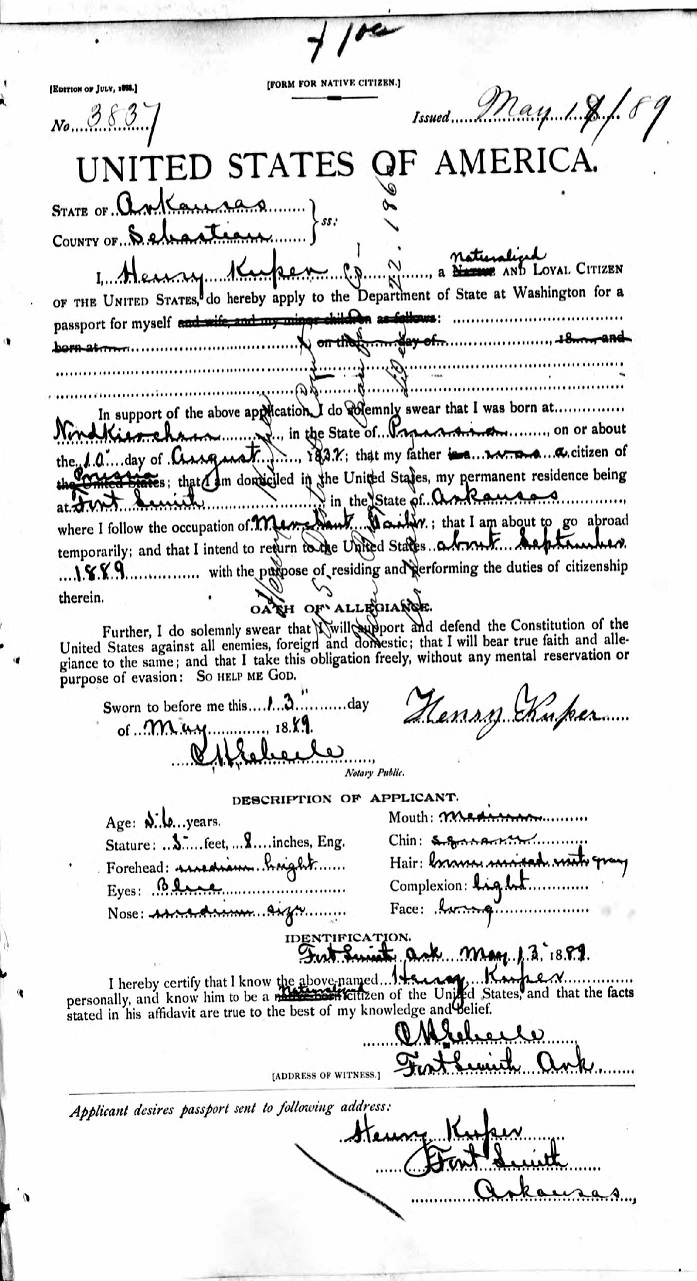 [EDITION OF JULY, 1888.]
[FORM FOR NATIVE CITIZEN.]
No. 3837
Issued May 18/89
UNITED STATES OF AMERICA.
STATE OF Arkansas
COUNTY OF Sebastian
ss:
I, Henry Kuper, a Naturalized AND LOYAL CITIZEN
OF THE UNITED STATES, do hereby apply to the Department of State at Washington for a
passport for myself and wife, and my minor children as follows:
born at on the day of , 18 , and
In support of the above application, I do solemnly swear that I was born at
Nordkirchen, in the State of Prussia, on or about
the 10" day of August, 1832; that my father is was a citizen of
the United States Prussia; that I am domiciled in the United States, my permanent residence being
at Fort Smith in the State of Arkansas,
where I follow the occupation of Merchant Tailor; that I am about to go abroad
temporarily; and that I intend to return to the United States about September
1889 with the purpose of residing and performing the duties of citizenship
therein.
Henry Kuper
U.S.
OATH OF ALLEGIANCE.
Further, I do solemnly swear that I will support and defend the Constitution of the
United States against all enemies, foreign and domestic; that I will bear true faith and alle-
giance to the same; and that I take this obligation freely, without any mental reservation or
purpose of evasion: SO HELP ME GOD.
Sworn to before me this 13" day
of May, 1889.
Henry Kuper
Notary Public.
DESCRIPTION OF APPLICANT.
Age: 56 years.
Mouth: Medium
Stature: 5 feet, 8 inches, Eng.
Chin: square
Forehead: medium height
Hair: brown mixed with gray
Eyes: Blue
Complexion: light
Nose: medium size
Face: long
IDENTIFICATION.
Fort Smith Ark May 13" 1889.
I hereby certify that I know the above-named Henry Kuper
personally, and know him to be a Naturalized citizen of the United States, and that the facts
stated in his affidavit are true to the best of my knowledge and belief.
[ADDRESS OF WITNESS.] Fort Smith Ark.
Applicant desires passport sent to following address:
Henry Kuper
Fort Smith
Arkansas,